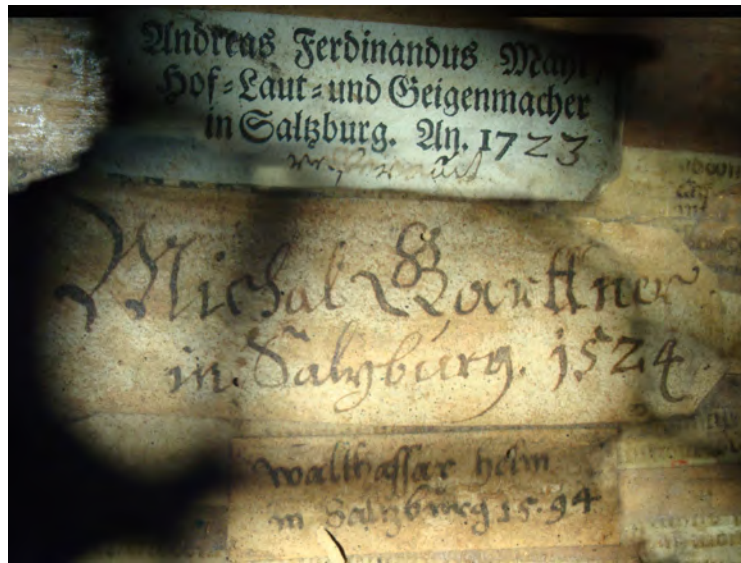 Andreas Ferdinandus
Hof-Laut-und Geigenmacher
in Saltzburg. An. 1723
Michal Garttner
in Salzburg. 1524
walthassar helm
in Salzburg 15.94